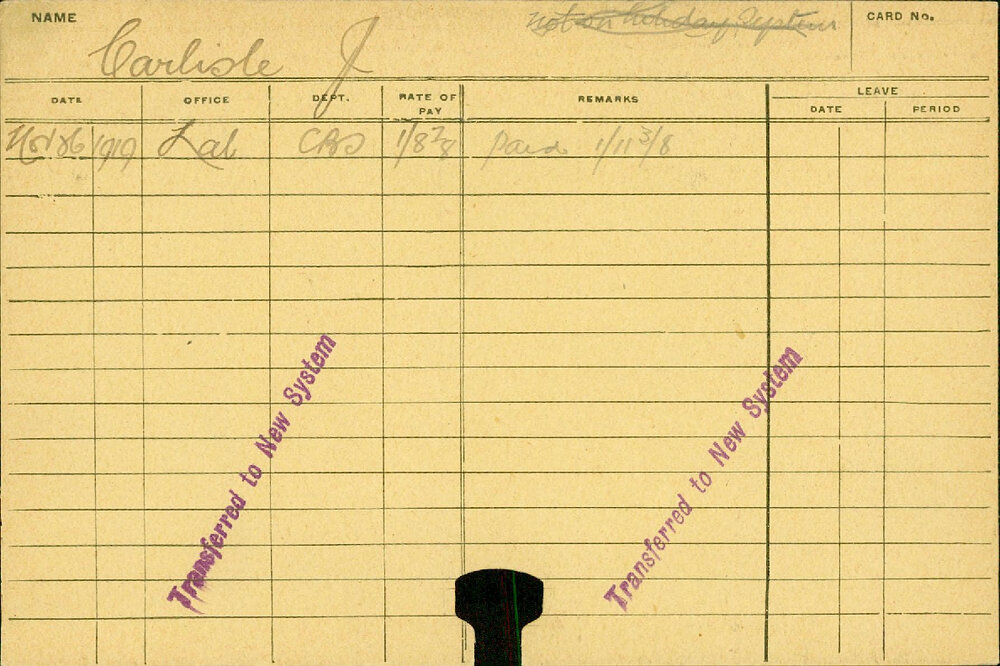 NAME
not on holiday system
CARD No.
Carlisle J
DATE
OFFICE
DEPT.
RATE OF PAY
REMARKS
LEAVE
DATE
PERIOD
Nov 26 1919 Lab 1/8 7/8 Paid 1/11 3/8
Transferred to New System
Transferred to New System